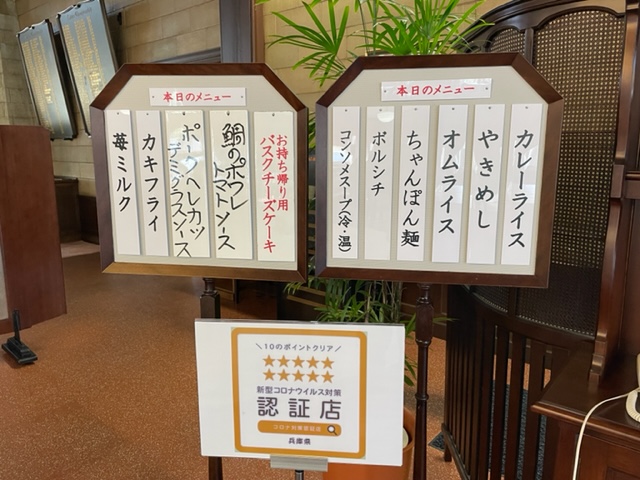 本日のメニュー
カレーライス
やきめし
オムライス
ちゃんぽん麺
ボルシチ
コンソメスープ(冷・温)
本日のメニュー
お持ち帰り用
バスクチーズケーキ
鯛のポワレ
トマトソース
ポークヘレカツ
デミグラスソース
カキフライ
苺ミルク
\10のポイントクリア/
★★★★★
★★★★★
新型コロナウイルス対策
認証店
コロナ対策認証店
兵庫県